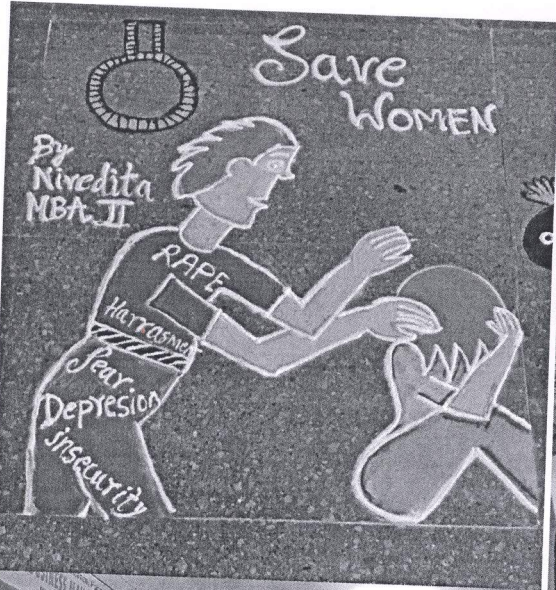 Save
WOMEN
By
Nivedita
MBA II
RAPE
Harrasment
Fear
Depresion
insecurity